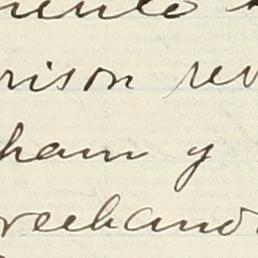 mento
rison rev
ham y
reehando